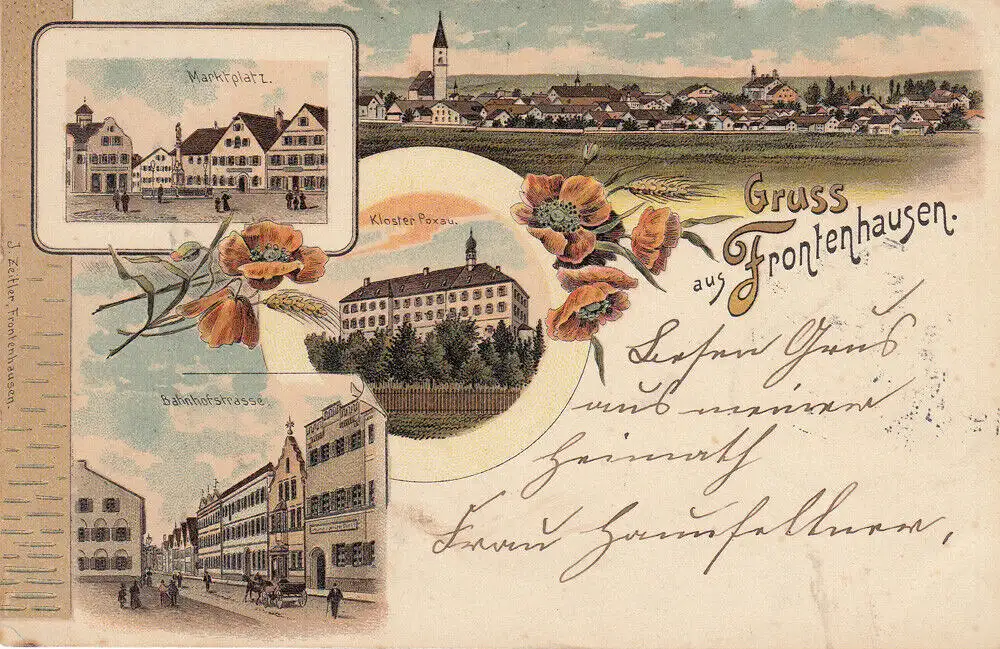 Marktplatz.
Gruss
aus Frontenhausen.
Kloster Poxau.
Bahnhofstrasse.
J. Zeitler, Frontenhausen.
Besten Grus
aus meiner
Heimath
Frau